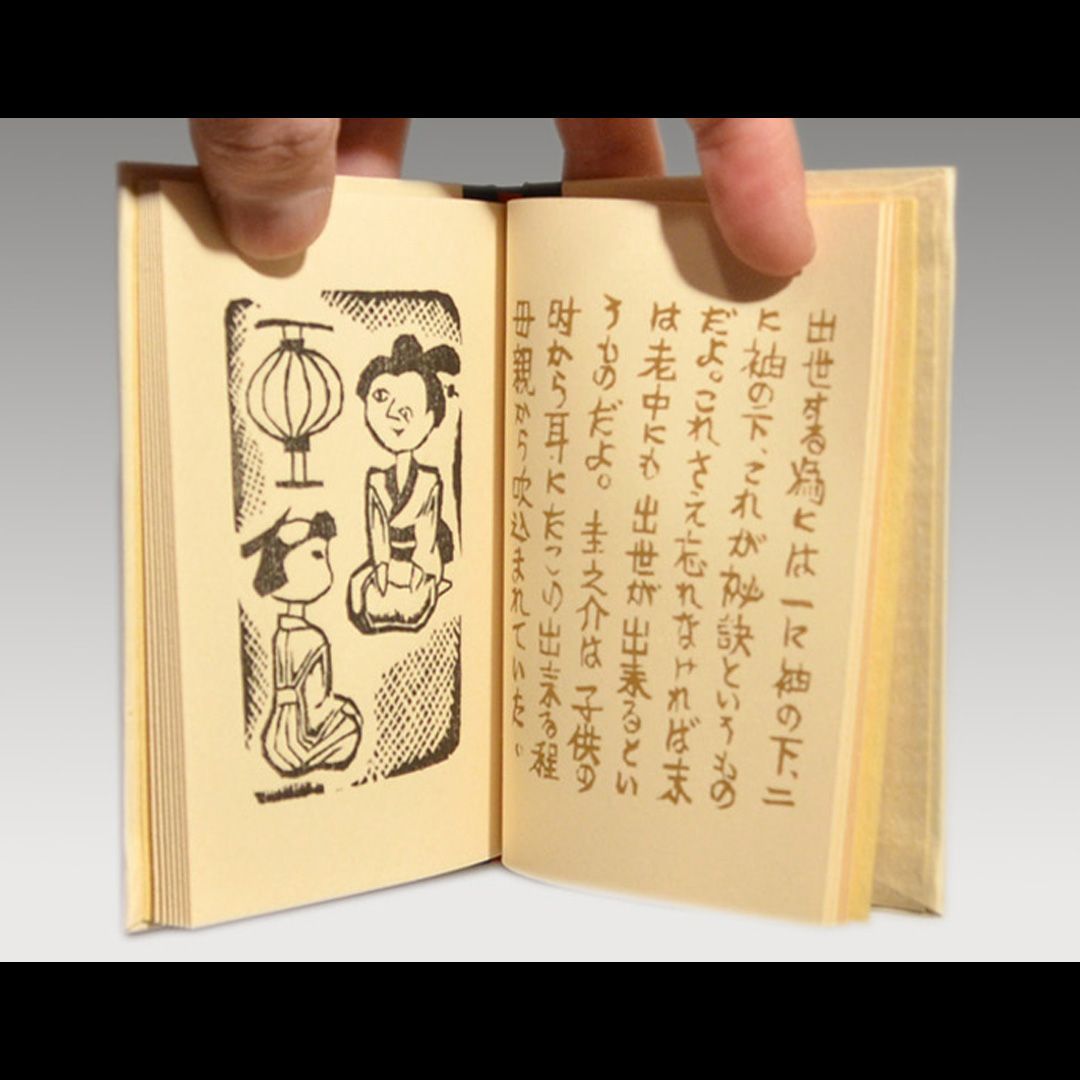 出世する為には一に袖の下、二
に袖の下、これが秘訣というもの
だよ。これさえ忘れなければ末
は老中にも出世が出来るとい
うものだよ。圭之介は子供の
時から耳にたこの出来る程
母親から吹込まれていた。